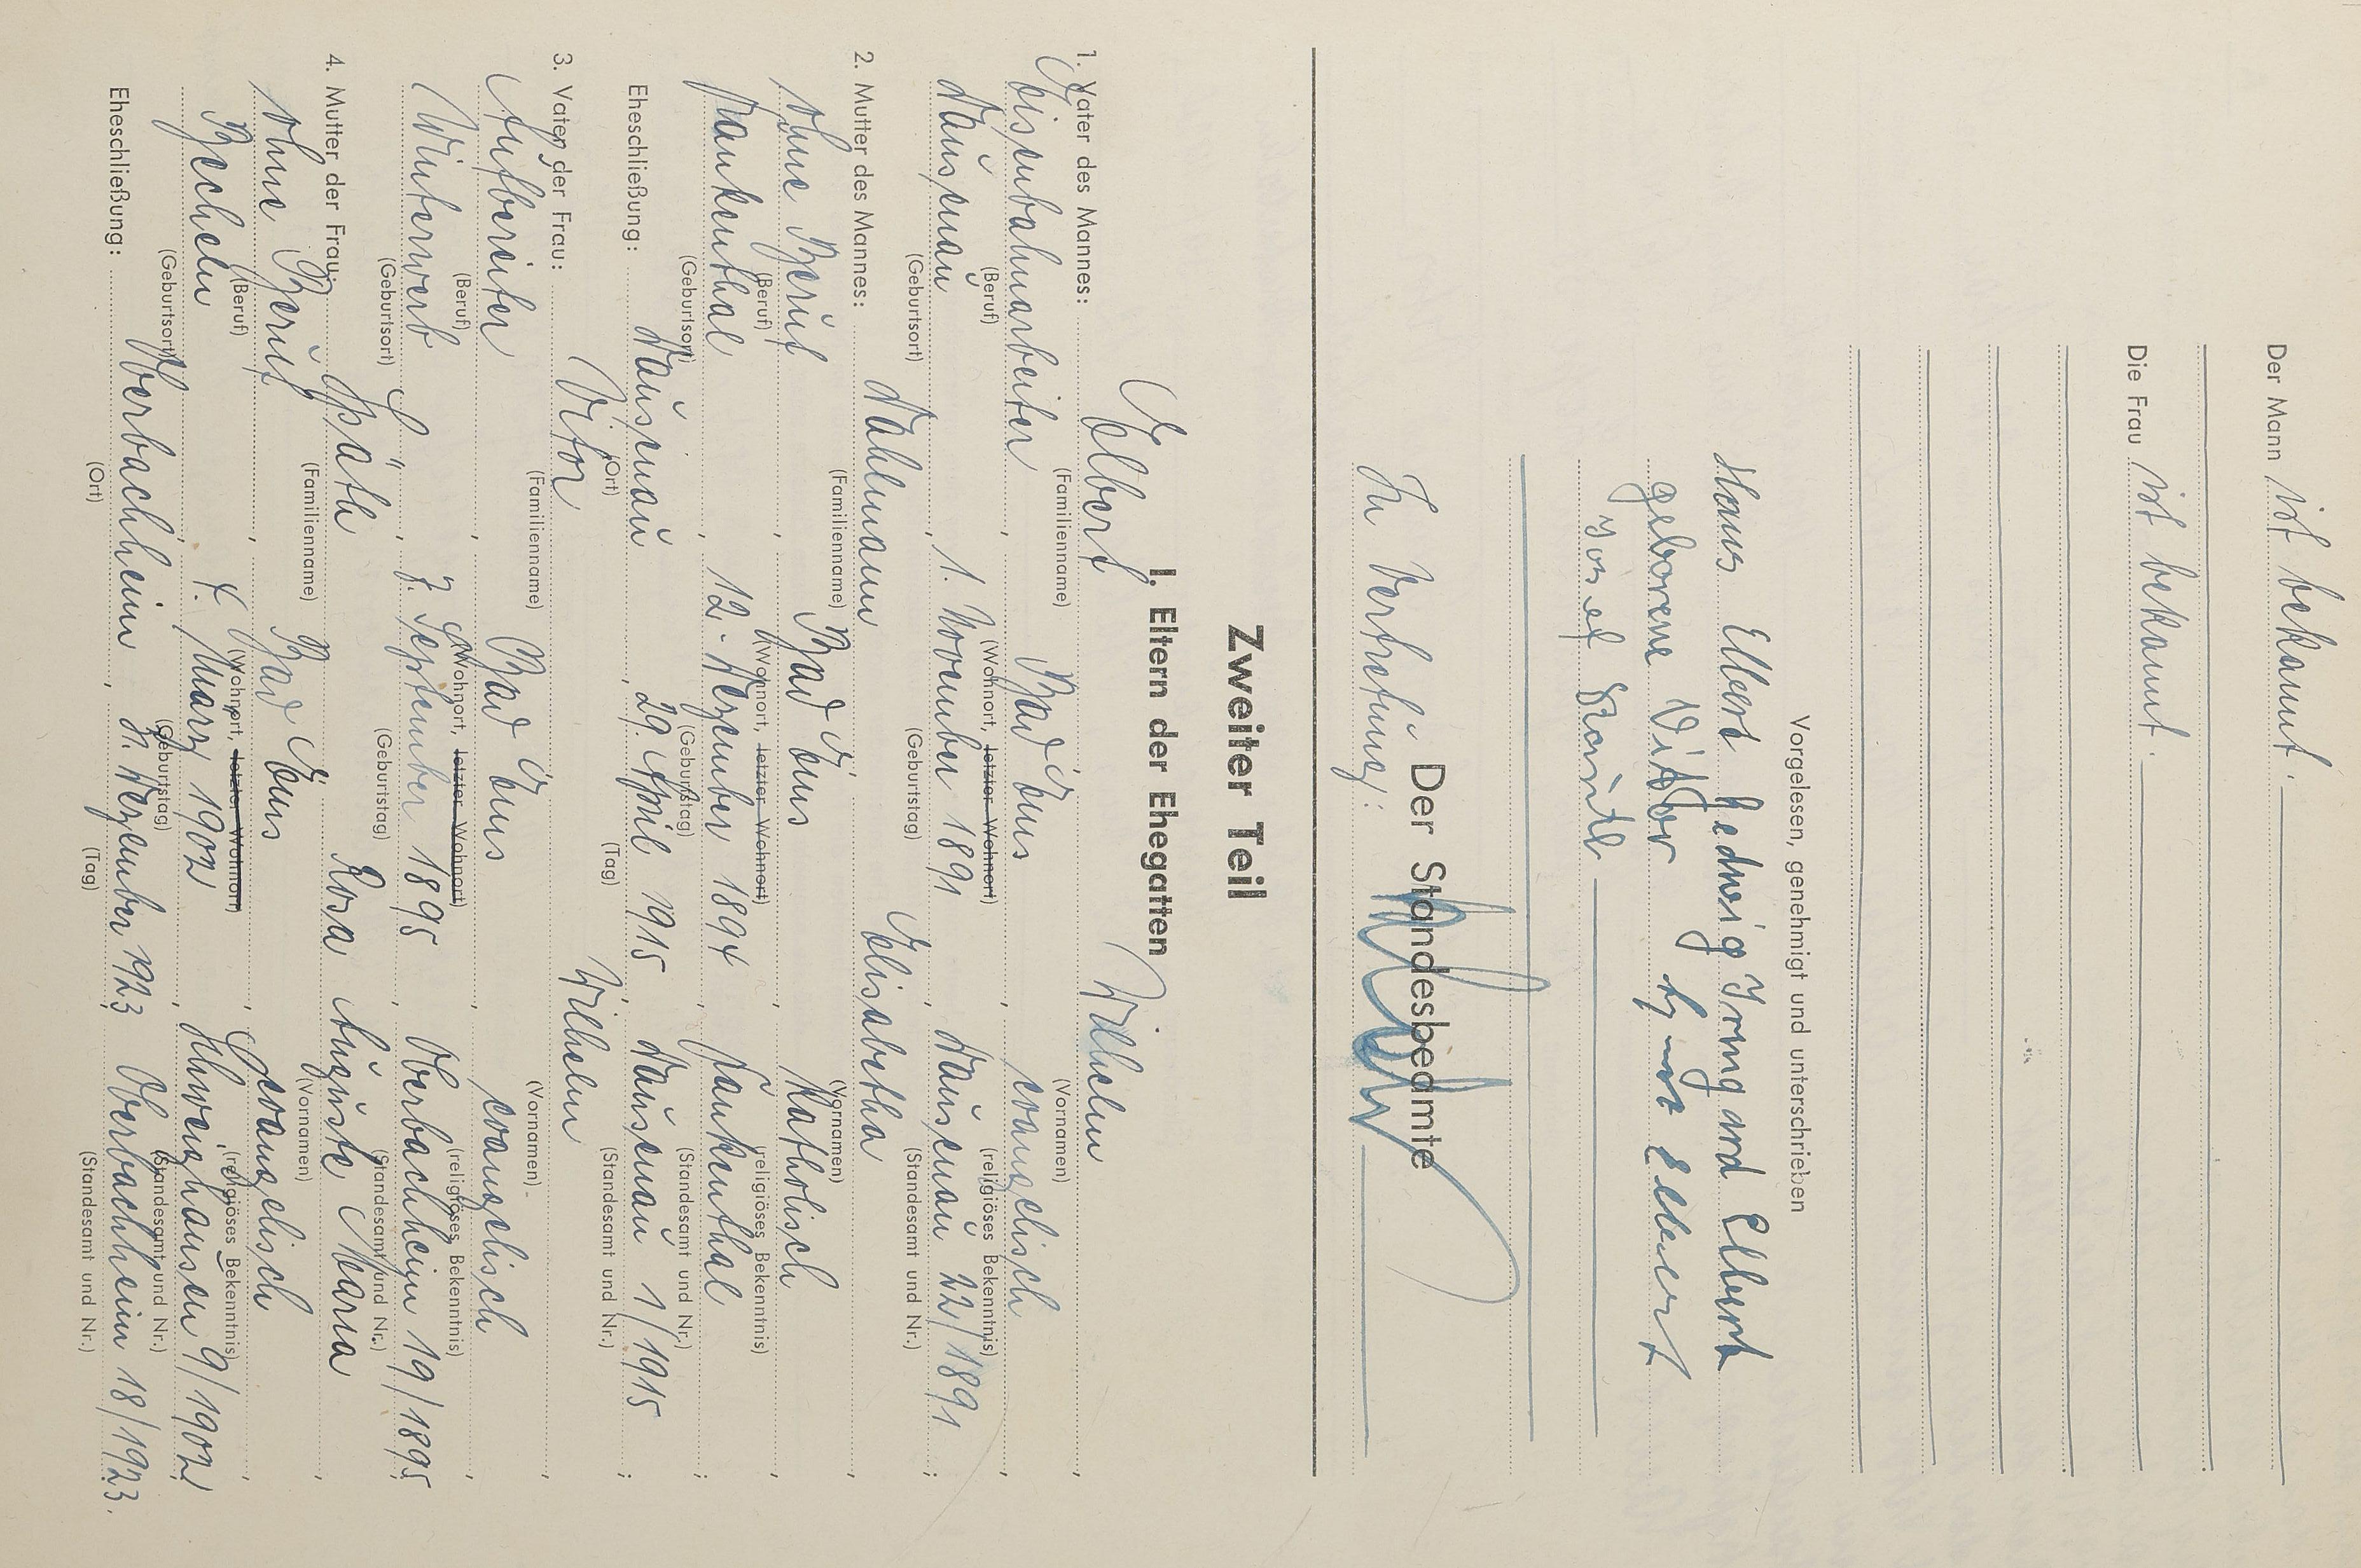 Der Mann ist bekannt.
Die Frau ist bekannt.
Vorgelesen, genehmigt und unterschrieben
Hans Elbert Hedwig Irmgard Elbert
geborene Vitor
Josef
In Vertretung: Der Standesbeamte
Zweiter Teil
I. Eltern der Ehegatten
1. Vater des Mannes: Elbert Wilhelm
(Familienname) (Vornamen)
Eisenbahnarbeiter, Bad Ems, evangelisch,
(Beruf) (Wohnort, letzter Wohnort) (religiöses Bekenntnis)
Dausenau, 1. November 1891, Dausenau 22/1891;
(Geburtsort) (Geburtstag) (Standesamt und Nr.)
2. Mutter des Mannes: Dahlmann Elisabetha,
(Familienname) (Vornamen)
ohne Beruf, Bad Ems, Katholisch,
(Beruf) (Wohnort, letzter Wohnort) (religiöses Bekenntnis)
Frankenthal, 12. Dezember 1894, Frankenthal;
(Geburtsort) (Geburtstag) (Standesamt und Nr.)
Eheschließung: Dausenau, 29. April 1915, Dausenau 1/1915;
(Ort) (Tag) (Standesamt und Nr.)
3. Vater der Frau: Vitor Wilhelm,
(Familienname) (Vornamen)
Aufbereiter, Bad Ems, evangelisch,
(Beruf) (Wohnort, letzter Wohnort) (religiöses Bekenntnis)
Winterwerb, 7. September 1895, Oberbachheim 19/1895;
(Geburtsort) (Geburtstag) (Standesamt und Nr.)
4. Mutter der Frau: Späth Rosa Auguste Maria,
(Familienname) (Vornamen)
ohne Beruf, Bad Ems, Evangelisch,
(Beruf) (Wohnort, letzter Wohnort) (religiöses Bekenntnis)
Becheln, 4. März 1902, Schweighausen 9/1902;
(Geburtsort) (Geburtstag) (Standesamt und Nr.)
Eheschließung: Oberbachheim, Dezember 1923, Oberbachheim 18/1923.
(Ort) (Tag) (Standesamt und Nr.)